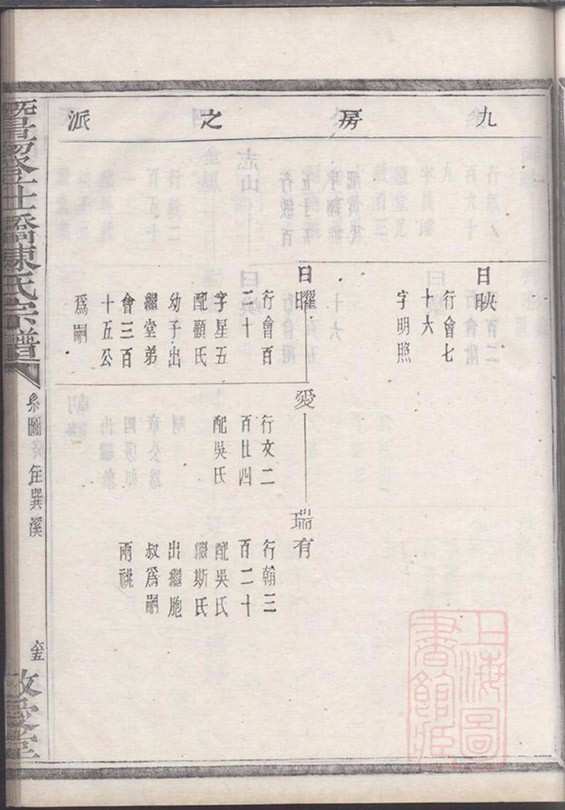 九房之派
日映
行會七
十六
字明照
日曜
行會百
二十
字星五
配顧氏
幼子出
繼堂弟
會三百
十五公
爲嗣
愛
行文二
百廿四
配吳氏
瑞有
行翰三
百二十
配吳氏
繼斯氏
出繼胞
叔爲嗣
兩祧
暨陽登仕橋陳氏宗譜
系圖
住巽溪
敬愛堂
上海圖
書館